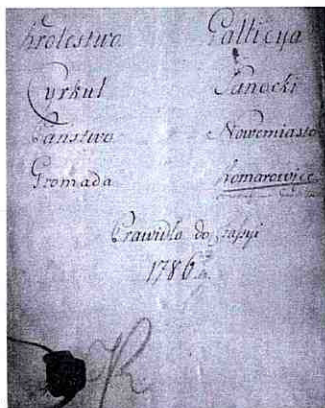 Królestwo Gallicya
Cyrkuł Sanocki
Państwo Nowemiasto
Gromada Komarowice
Prawidło do
1786